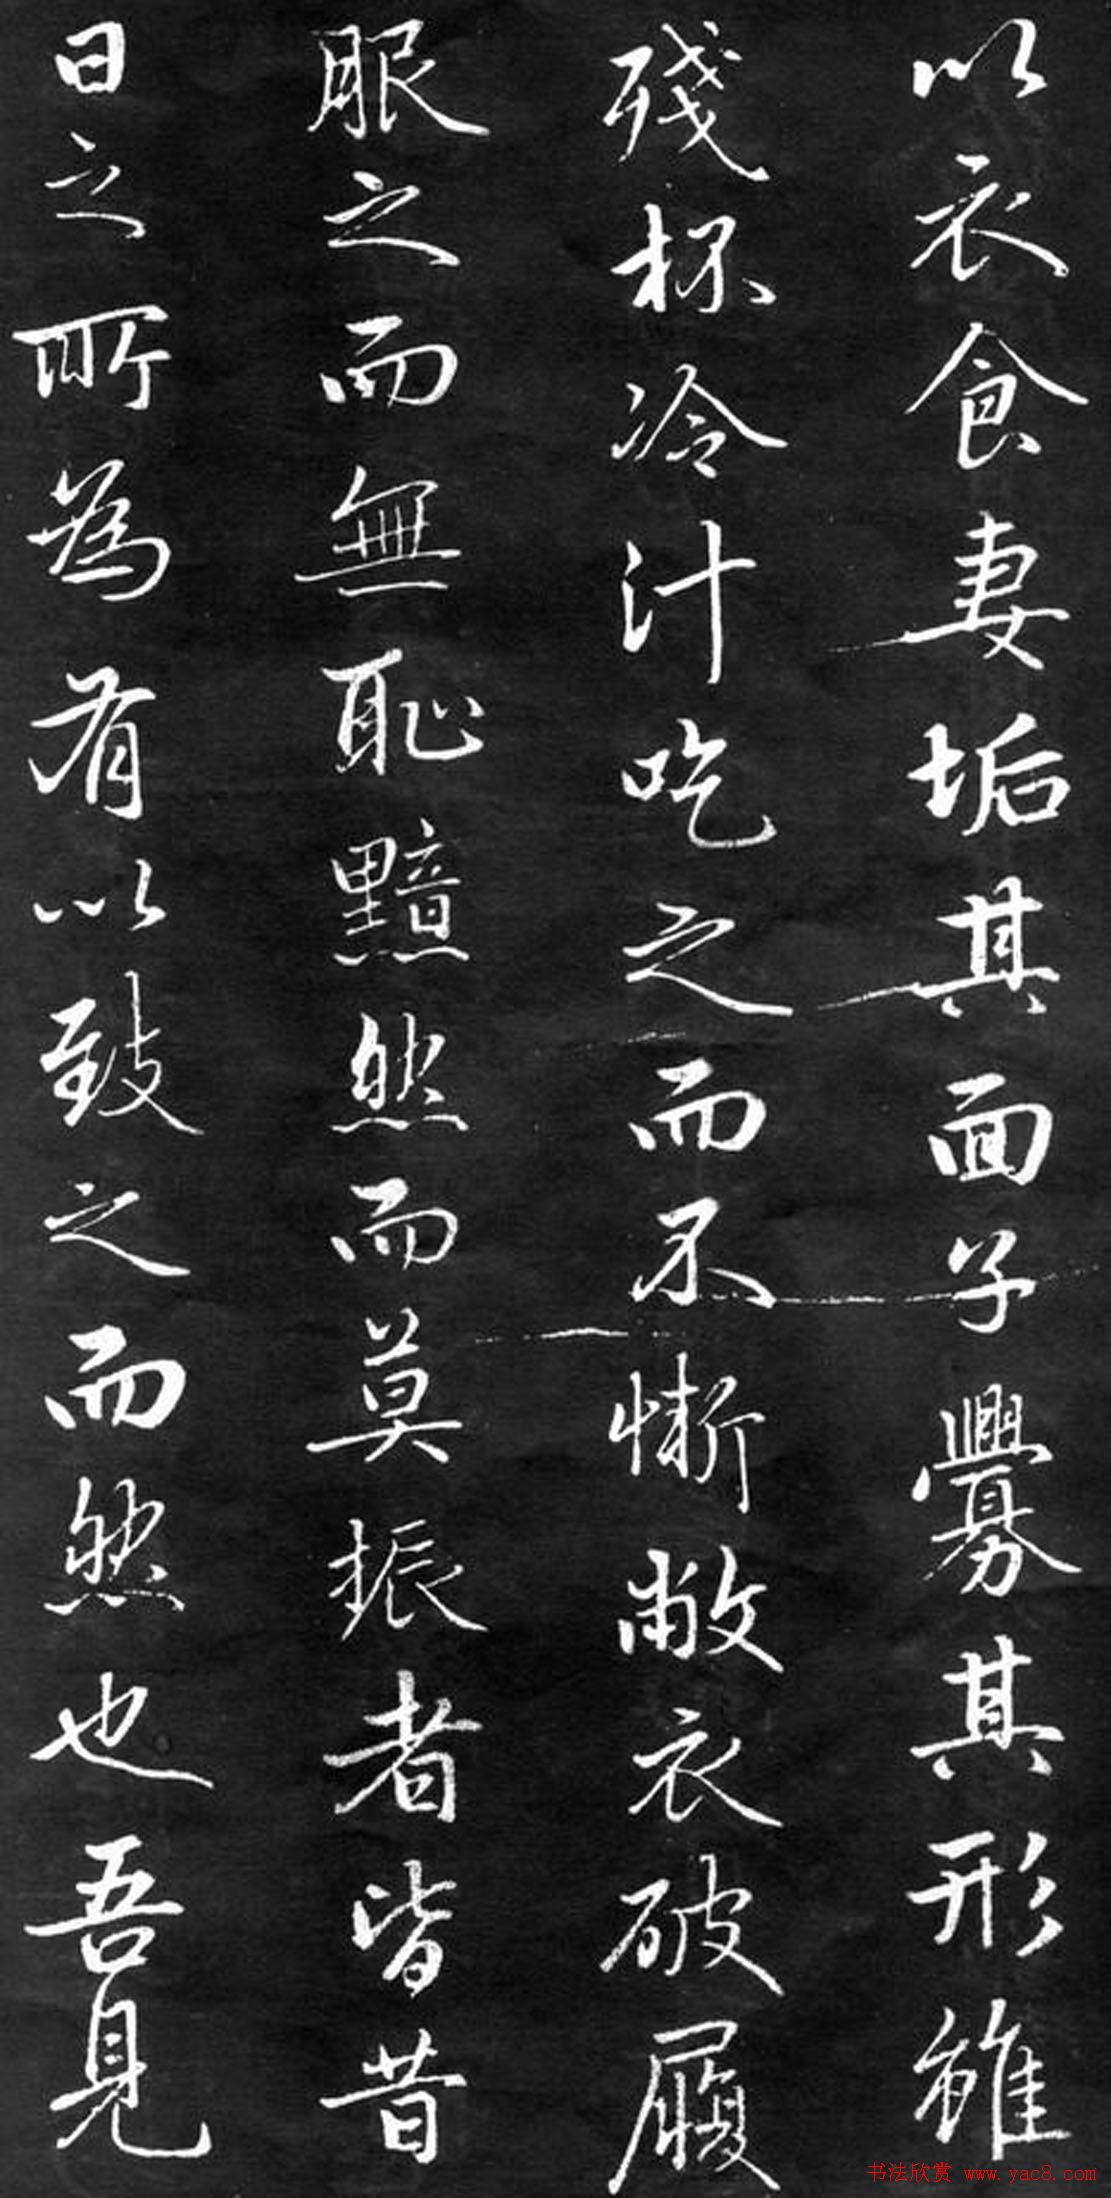 以衣食妻垢其面子釁其形雖
殘杯冷汁吃之而不慚敝衣破履
服之而無恥黯然而莫振者皆昔
日之所為有以致之而然也吾見
书法欣赏 www.yac8.com